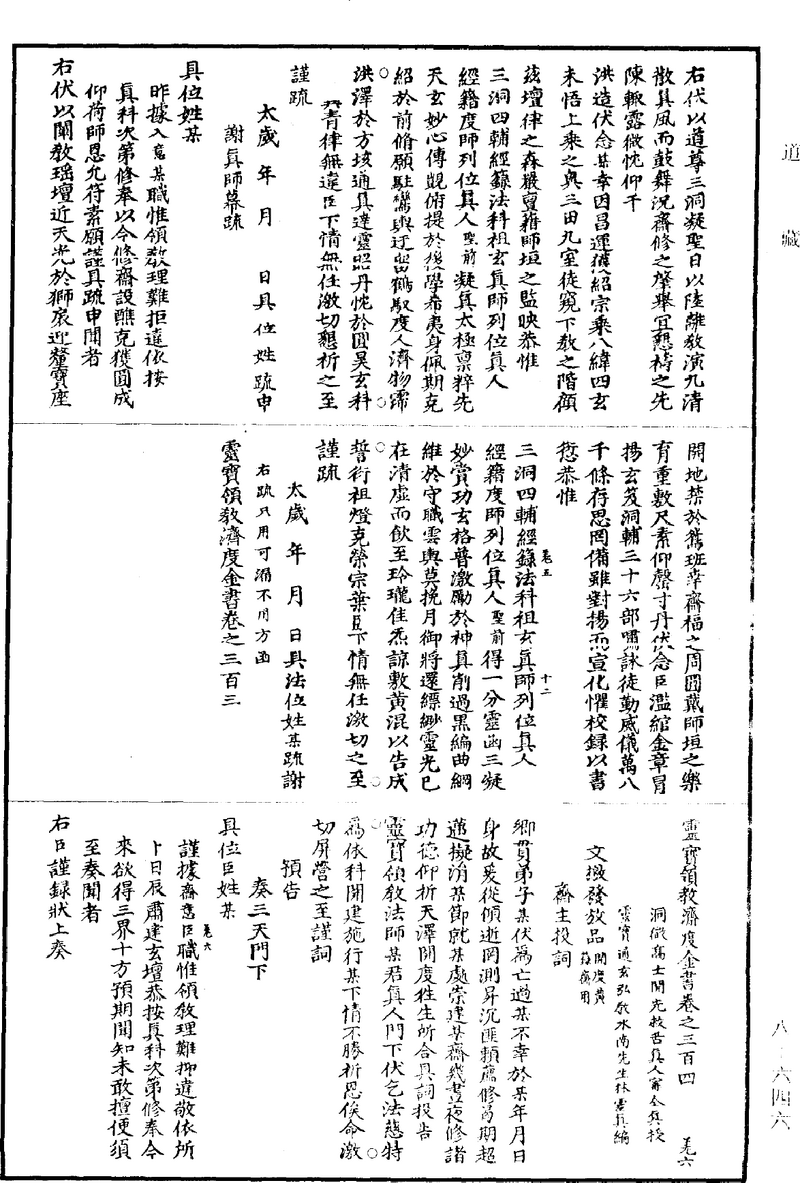 道藏
右伏以道尊三洞凝聖日以陸離教演九清
散真風而鼓舞況齋修之肇舉宜懇禱之先
陳輒露微忱仰干
洪造伏念某幸因昌運獲紹宗乘八緯四玄
未悟上乘之奧三田九室徒窺下教之階顧
茲壇律之森嚴亶藉師垣之監映恭惟
三洞四輔經籙法科祖玄真師列位真人
經籍度師列位真人聖前凝真太極稟粹先
天玄妙心傳覬俯提於後學希夷身佩期克
紹於前脩願駐鸞輿迂留鶴馭度人濟物霈
洪澤於方垓通真達靈昭丹忱於圓昊玄科
青律無違臣下情無任激切懇祈之至
謹疏
太歲 年 月 日具位姓疏申
謝真師幕疏
具位姓某
昨據入意某職惟領教理難拒違依按
真科次第修奉以今修齋設醮克獲圓成
仰荷師恩允符素願謹具疏申聞者
右伏以闡教瑤壇近天光於獅扆迎釐寶座
開地禁於鴛班幸齋福之周圓戴師垣之樂
育重敷尺素仰罄寸丹伏念臣濫綰金章冒
揚玄笈洞輔三十六部嘯詠徒勤威儀萬八
千條存思罔備雖對揚而宣化懼校錄以書
愆恭惟
卷五 十二
三洞四輔經籙法科祖玄真師列位真人
經籍度師列位真人聖前得一分靈函三凝
妙賞功玄格普激勵於神真削過黑編曲綱
維於守職雲輿莫挽月御將還縹緲靈光已
在清虛而飲至玲瓏佳炁諒敷黃混以告成
誓衍祖燈克榮宗葉臣下情無任激切之至
謹疏
太歲 年 月 日具法位姓某疏謝
右疏只用可漏不用方函
靈寶領教濟度金書卷之三百三
靈寶領教濟度金書卷之三百四 羌六
洞微高士開光救苦真人甯全真授
靈寶通玄弘教水南先生林靈真編
文檄發放品開度黃籙齋用
齋主投詞
鄉貫弟子某伏為亡過某不幸於某年月日
身故爰從傾逝罔測昇沉匪賴薦修曷期超
邁擬消某節就某處崇建某齋幾晝夜修諸
功德仰祈天澤開度往生所合具詞投告
靈寶領教法師某君真人門下伏乞法慈特
為依科開建施行某下情不勝祈恩俟命激
切屏營之至謹詞
預告
奏三天門下
具位臣姓某
卷六
謹據齋意臣職惟領教理難抑違敬依所
卜日辰肅建玄壇恭按真科次第修奉今
來欲得三界十方預期聞知未敢擅便須
至奏聞者
右臣謹錄狀上奏
八－六四六